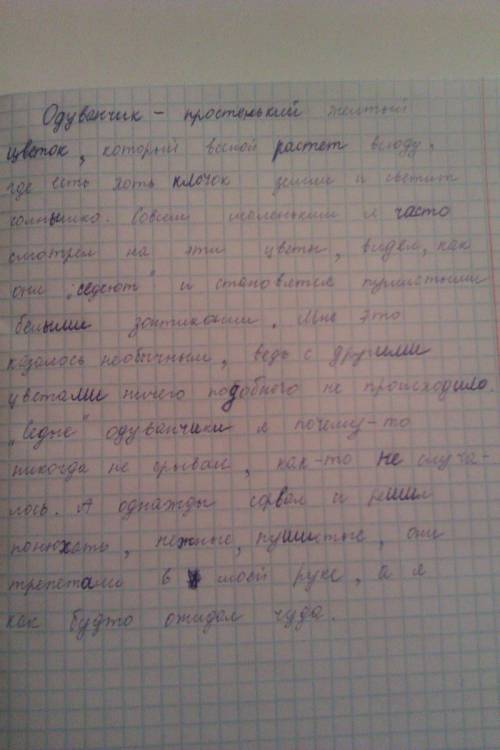 Одуванчик – простенький желтый
цветок, который весной растет всюду,
где есть хоть клочок земли и светит
солнышко. Совсем маленьким я часто
смотрел на эти цветы, видел, как
они „седеют“ и становятся пушистыми
белыми зонтиками. Мне это
казалось необычным, ведь с другими
цветами ничего подобного не происходило.
„Седые“ одуванчики я почему-то
никогда не срывал, как-то не случа-
лось. А однажды сорвал и решил
понюхать, нежные, пушистые, они
трепетали в моей руке, а я
как будто ожидал чуда.